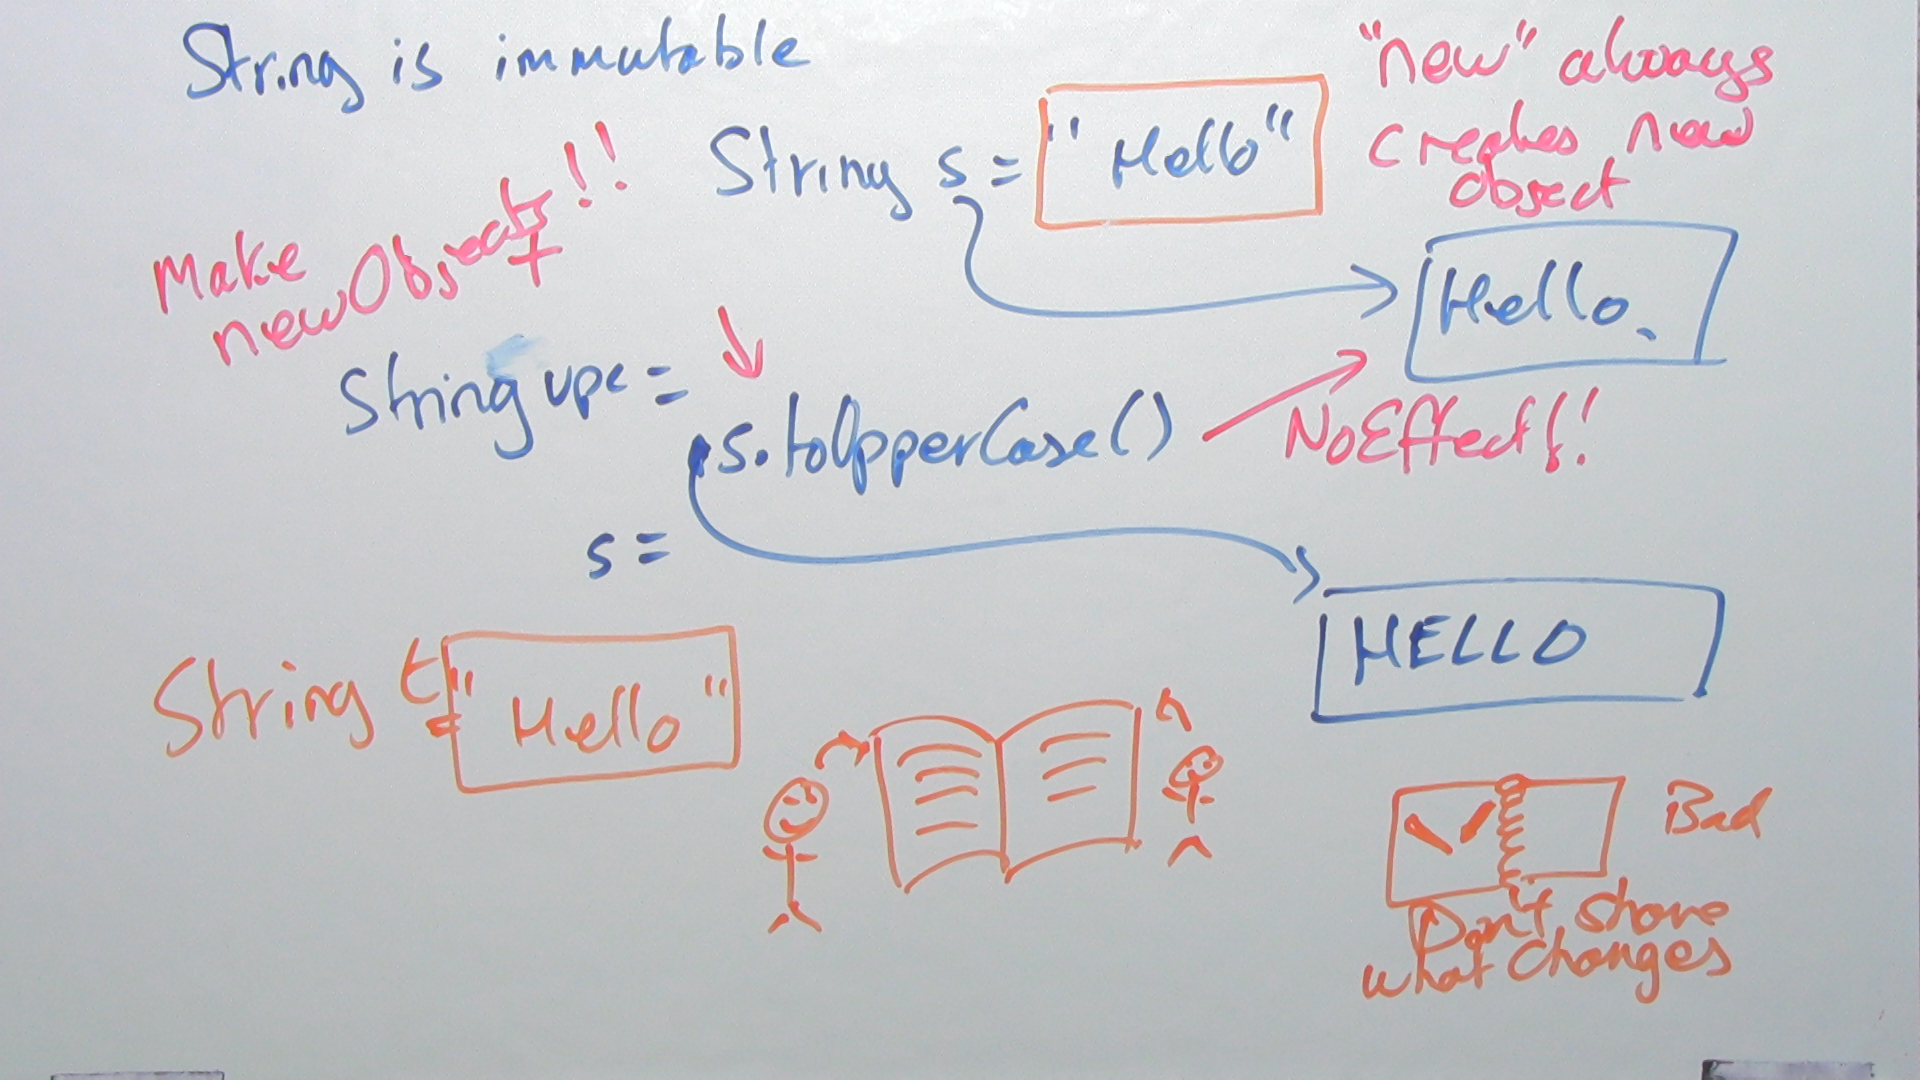 String is immutable
"new" always
creates new
object
String s = "Hello"
Make
newObjects!!
Hello
String upc =
s.toUpperCase()
NoEffect!!
s =
HELLO
String t = "Hello"
Bad
Don't share
what changes